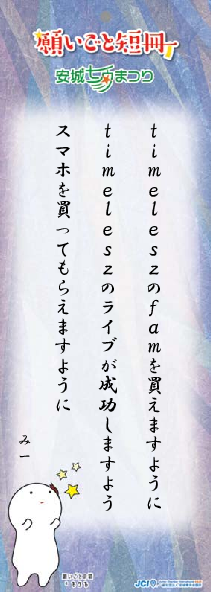 願いごと短冊
安城七夕まつり
timeleszのfamを買えますように
timeleszのライブが成功しますよう
スマホを買ってもらえますように
みー
願いごと短冊
JCI